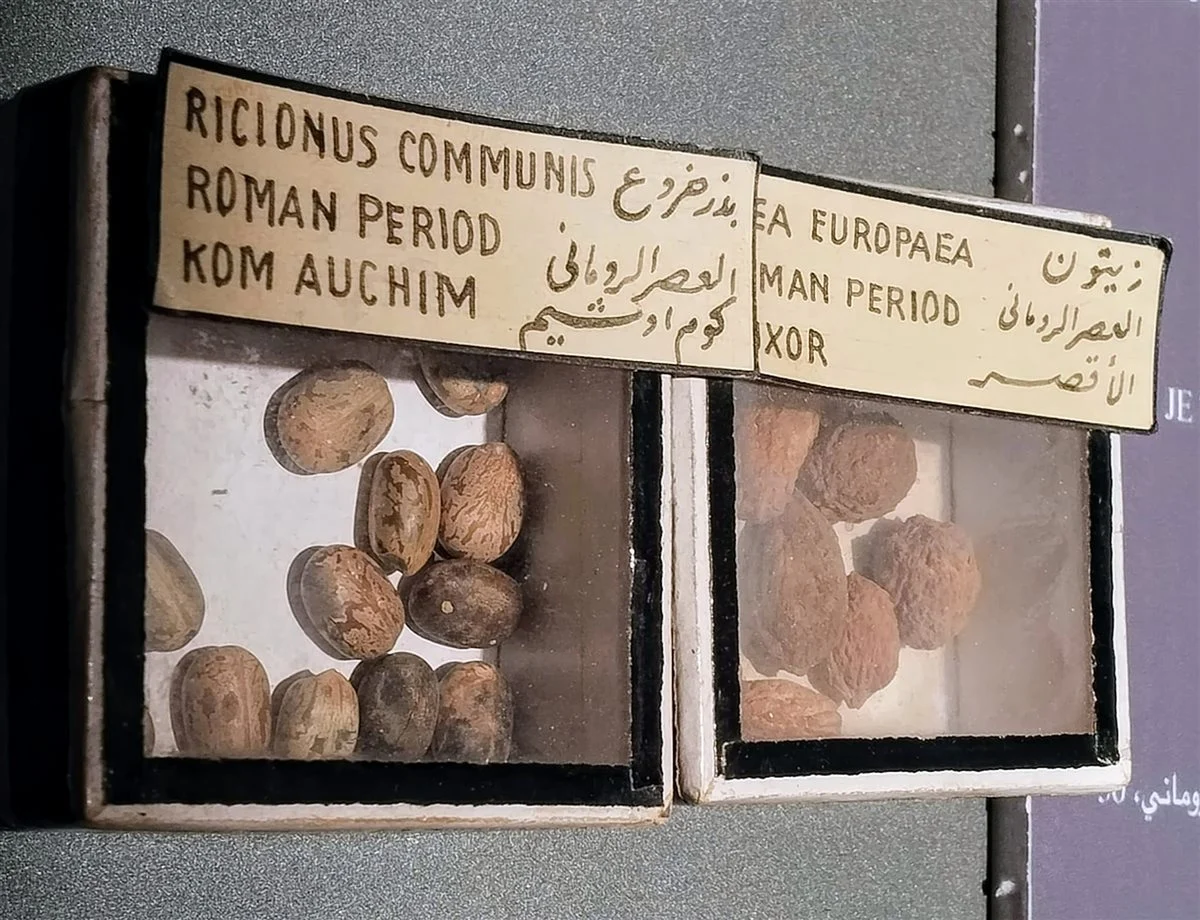 RICIONUS COMMUNIS
بذر خروع
ROMAN PERIOD
العصر الرومانى
KOM AUCHIM
كوم اوشيم
EA EUROPAEA
زيتون
MAN PERIOD
العصر الرومانى
XOR
الأقصر
JE
وماني،